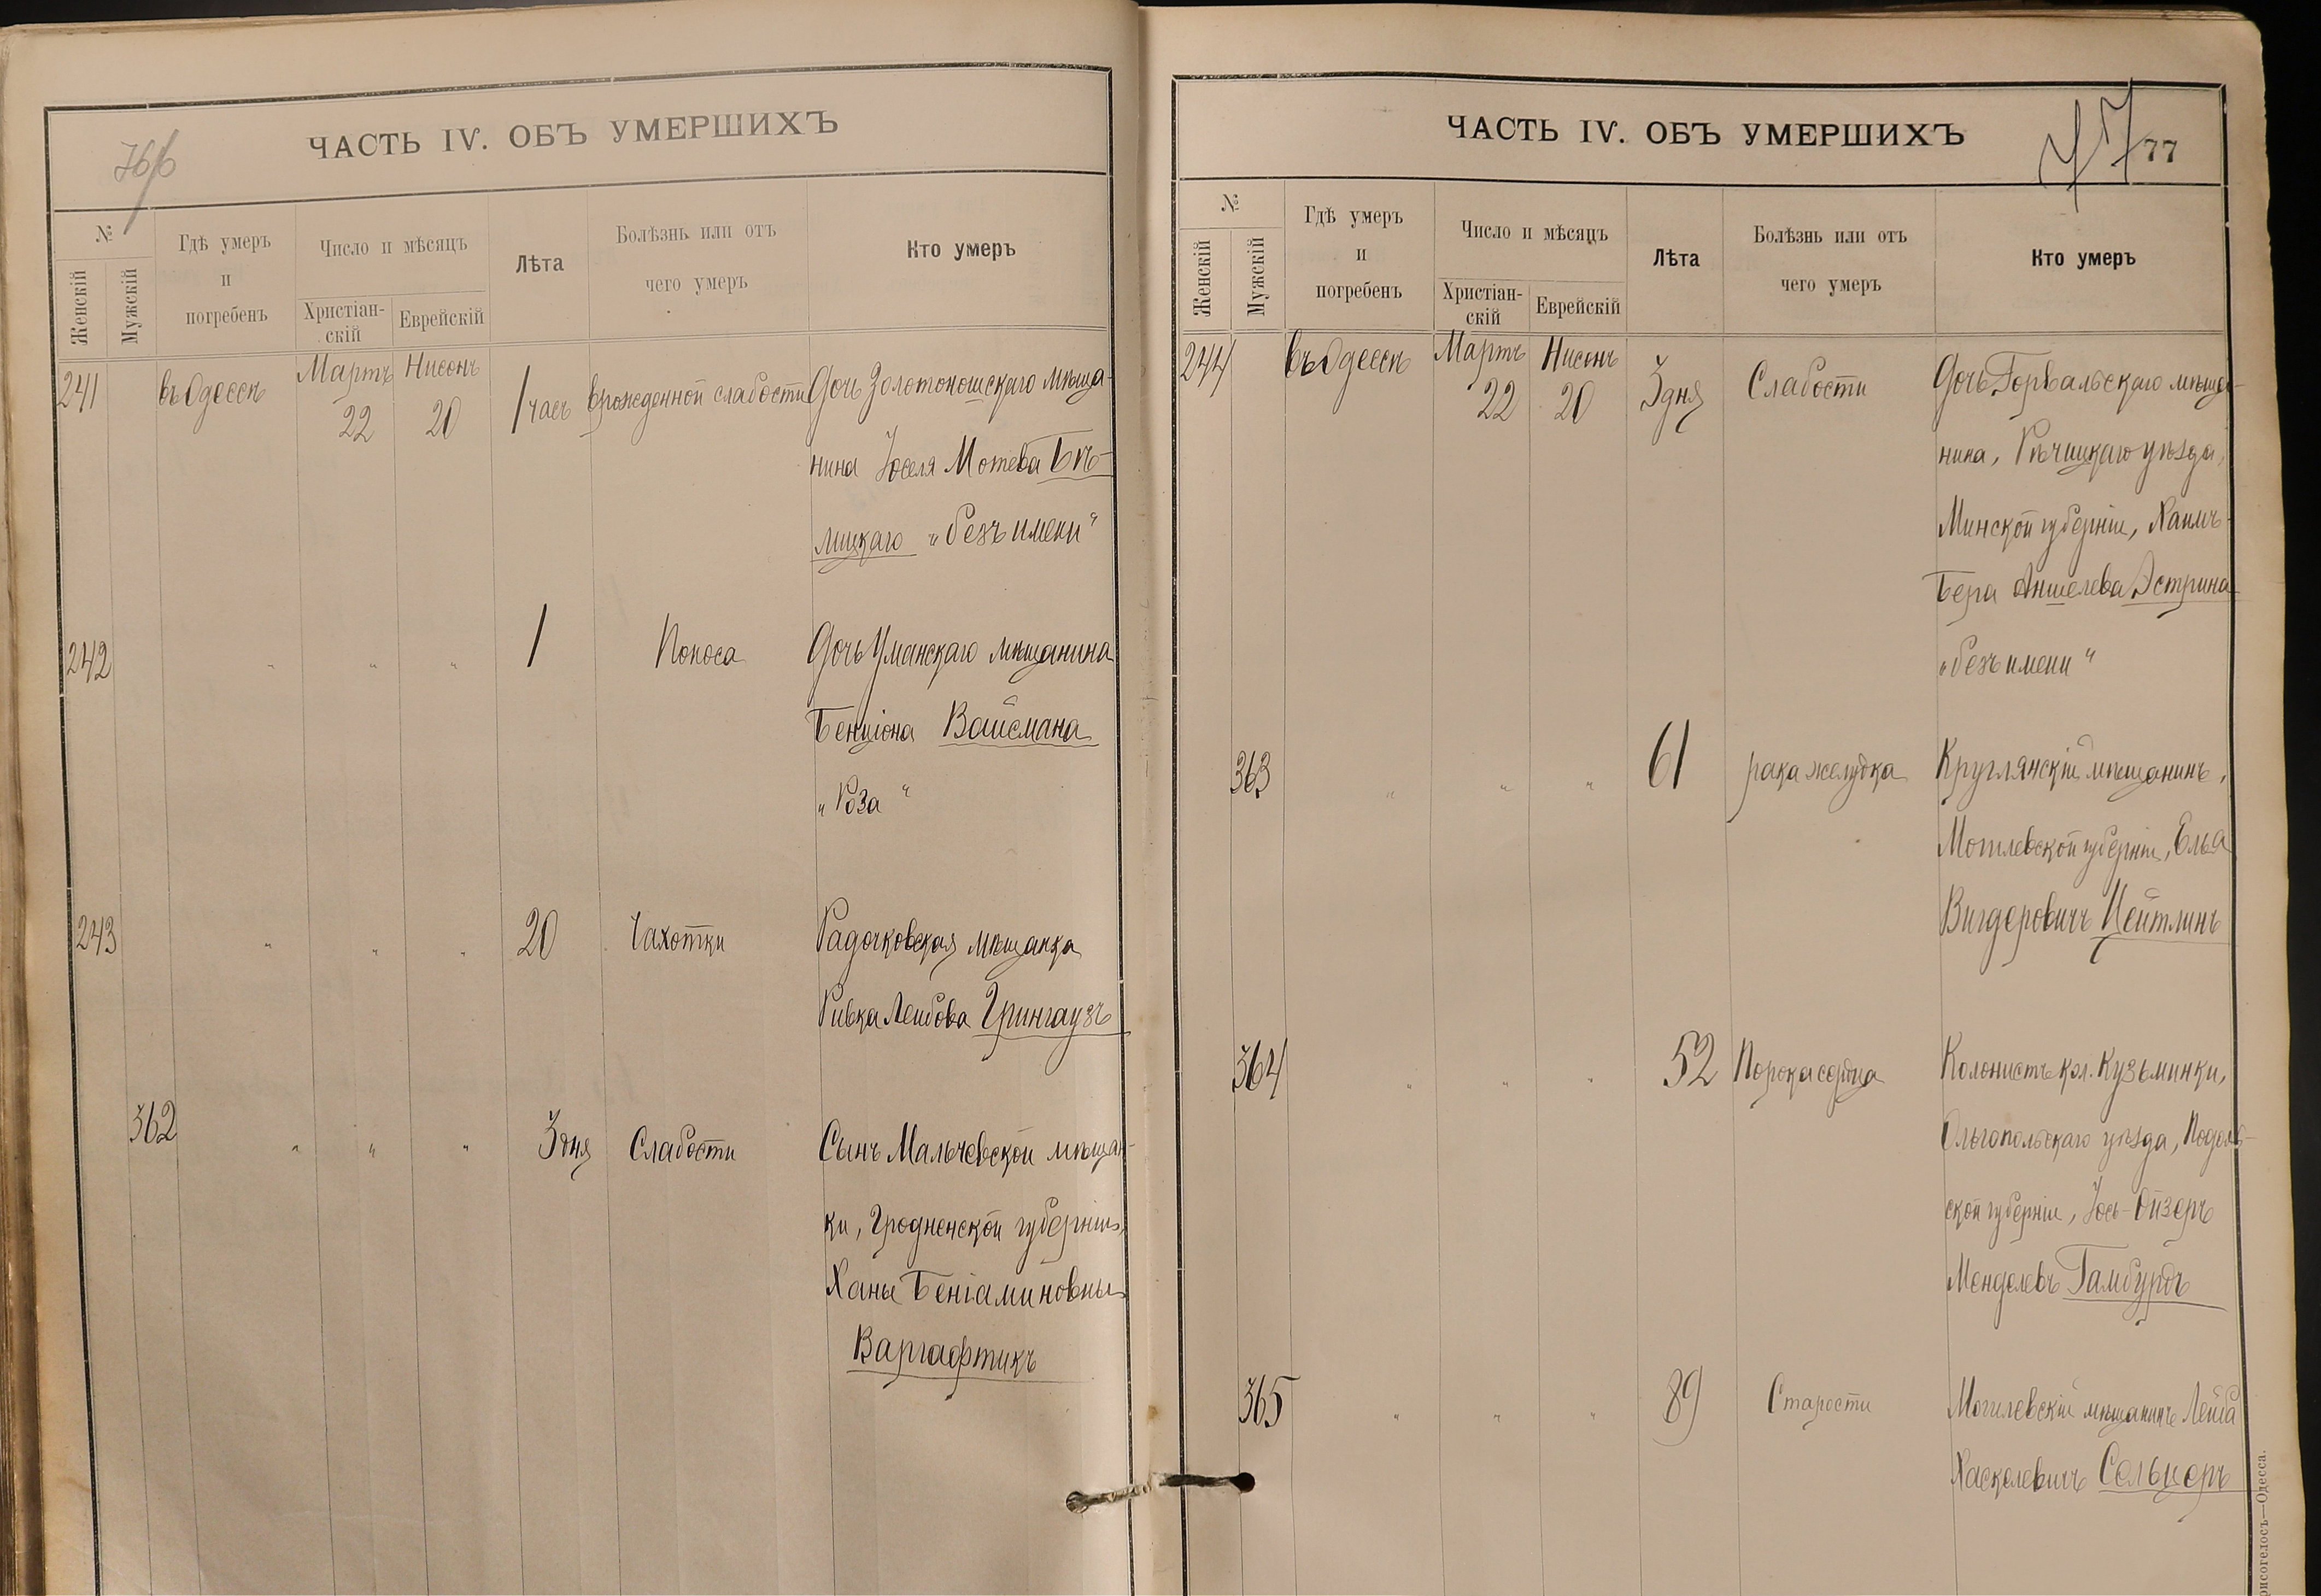 ЧАСТЬ IV. ОБЪ УМЕРШИХЪ
№
Женскій
Мужскій
Гдѣ умеръ
и
погребенъ
Число и мѣсяцъ
Христіан-
скій
Еврейскій
Лѣта
Болѣзнь или отъ
чего умеръ
Кто умеръ
241 въ Одессѣ Мартъ 22 Нисонъ 20 1 часъ врожденной слабости Дочь Золотоношскаго мѣща-
нина Іоселя Мотева Бѣ-
лицкаго „безъ имени“
242 „ „ „ 1 Поноса Дочь Уманскаго мѣщанина
Бенціона Вайсмана
„Роза“
243 „ „ „ 20 Чахотки Радочковская мѣщанка
Ривка Лейбова Грингаузъ
362 „ „ „ 3 дня Слабости Сынъ Мальчевской мѣщан-
ки, Гродненской губерніи,
Ханы Беніаминовны
Варгафтикъ
ЧАСТЬ IV. ОБЪ УМЕРШИХЪ
77
№
Женскій
Мужскій
Гдѣ умеръ
и
погребенъ
Число и мѣсяцъ
Христіан-
скій
Еврейскій
Лѣта
Болѣзнь или отъ
чего умеръ
Кто умеръ
244 въ Одессѣ Мартъ 22 Нисонъ 20 3 дня Слабости Дочь Горвальскаго мѣща-
нина, Рѣчицкаго уѣзда,
Минской губерніи, Хаимъ-
Бера Аншелева Эстрина
„безъ имени“
363 „ „ „ 61 рака желудка Круглянскій мѣщанинъ,
Могилевской губерніи, Елья
Вигдеровичъ Цейтлинъ
364 „ „ „ 52 Порока сердца Колонистъ кол. Кузьминки,
Ольгопольскаго уѣзда, Подоль-
ской губерніи, Іось-Ойзеръ
Менделевъ Гамбурдъ
365 „ „ „ 89 Старости Могилевскій мѣщанинъ Лейба
Хаскелевичъ Сельцеръ
Одесса.